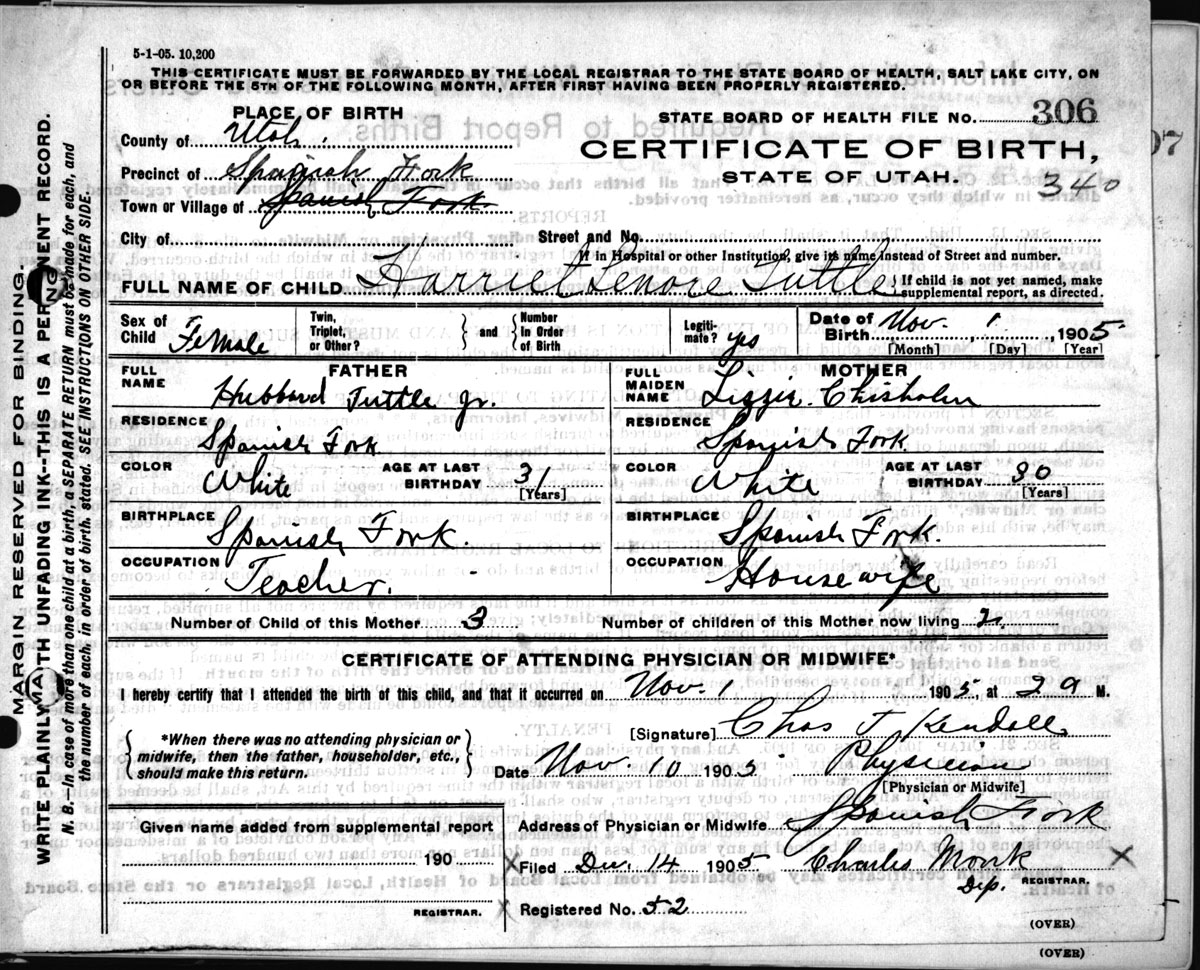 5-1-05. 10,200
THIS CERTIFICATE MUST BE FORWARDED BY THE LOCAL REGISTRAR TO THE STATE BOARD OF HEALTH, SALT LAKE CITY, ON
OR BEFORE THE 5TH OF THE FOLLOWING MONTH, AFTER FIRST HAVING BEEN PROPERLY REGISTERED.
PLACE OF BIRTH
STATE BOARD OF HEALTH FILE No. 306
County of Utah.
CERTIFICATE OF BIRTH,
Precinct of Spanish Fork
STATE OF UTAH. 340
Town or Village of Spanish Fork
City of Street and No.
If in Hospital or other Institution, give its name instead of Street and number.
FULL NAME OF CHILD Harriet Lenore Tuttle { If child is not yet named, make supplemental report, as directed.
Sex of Child Female Twin, Triplet, or Other? } and { Number in Order of Birth Legiti- mate? yes Date of Birth Nov. 1, 1905
[Month] [Day] [Year]
FATHER MOTHER
FULL NAME Hubbard Tuttle Jr. FULL MAIDEN NAME Lizzie Chisholm
RESIDENCE Spanish Fork RESIDENCE Spanish Fork
COLOR White AGE AT LAST BIRTHDAY 31 [Years] COLOR White AGE AT LAST BIRTHDAY 30 [Years]
BIRTHPLACE Spanish Fork. BIRTHPLACE Spanish Fork.
OCCUPATION Teacher. OCCUPATION Housewife
Number of Child of this Mother 3 Number of children of this Mother now living 2
CERTIFICATE OF ATTENDING PHYSICIAN OR MIDWIFE*
I hereby certify that I attended the birth of this child, and that it occurred on Nov. 1 1905, at 2 a M.
{ *When there was no attending physician or midwife, then the father, householder, etc., should make this return. }
[Signature] Chas J Kendall
Date Nov. 10 1905 Physician
[Physician or Midwife]
Given name added from supplemental report
Address of Physician or Midwife Spanish Fork
190
X Filed Dec. 14 1905 Charles Monk X
Dep. REGISTRAR.
REGISTRAR.
X Registered No. 52
(OVER)
(OVER)
MARGIN RESERVED FOR BINDING.
WRITE PLAINLY WITH UNFADING INK--THIS IS A PERMANENT RECORD.
N. B.—In case of more than one child at a birth, a SEPARATE RETURN must be made for each, and
the number of each, in order of birth, stated. SEE INSTRUCTIONS ON OTHER SIDE.